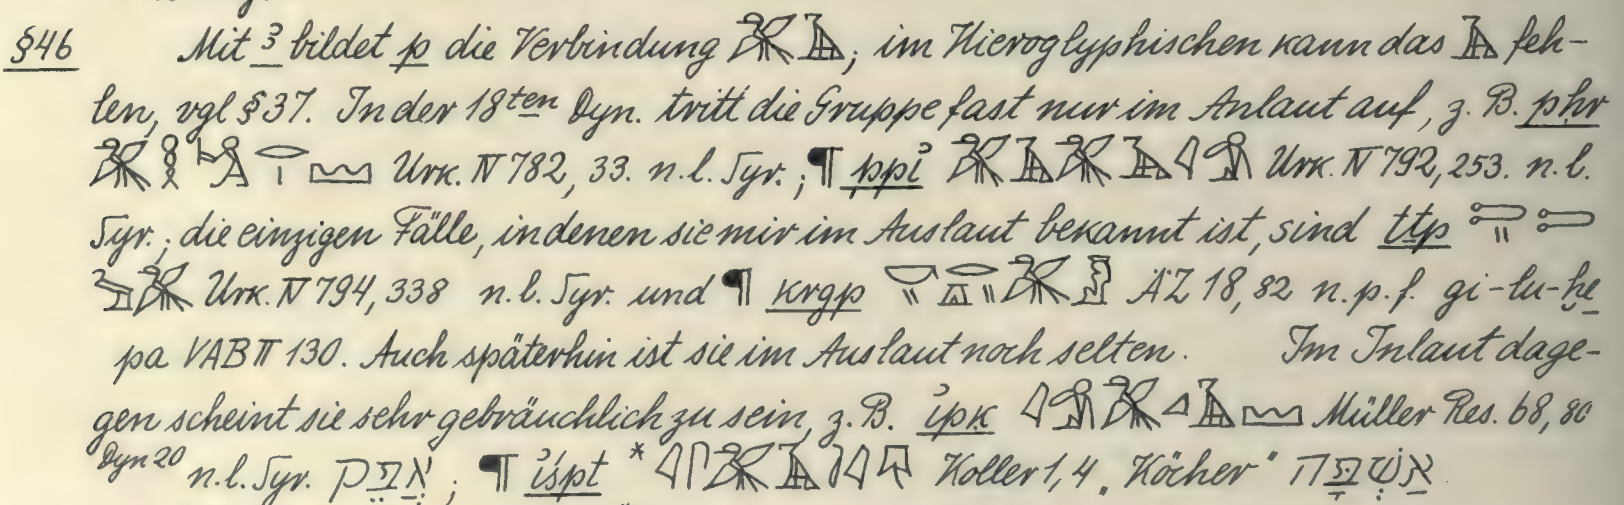 §46 Mit ꜣ bildet p die Verbindung 𓅯𓄿; im Hieroglyphischen kann das 𓄿 feh-
len, vgl §37. In der 18ten Dyn. tritt die Gruppe fast nur im Anlaut auf, z. B. pḥr
Urk. IV 782, 33. n. l. Syr.; ¶ ppi̓ 𓅯𓄿𓅯𓄿𓇋𓀁 Urk. IV 792, 253. n. l.
Syr.; die einzigen Fälle, in denen sie mir im Auslaut bekannt ist, sind ttp
Urk. IV 794, 338 n. l. Syr. und ¶ krgp ÄZ 18, 82 n. p. f. gi-lu-ḫe
pa VAB II 130. Auch späterhin ist sie im Auslaut noch selten. Im Inlaut dage-
gen scheint sie sehr gebräuchlich zu sein, z. B. i̓pk 𓇋𓀁𓅯𓈎𓄿𓈉 Müller Res. 68, 80
Dyn 20 n. l. Syr. אֲפֵק; ¶ i̓śpt * Koller 1, 4 „Köcher" אַשְׁפָּה